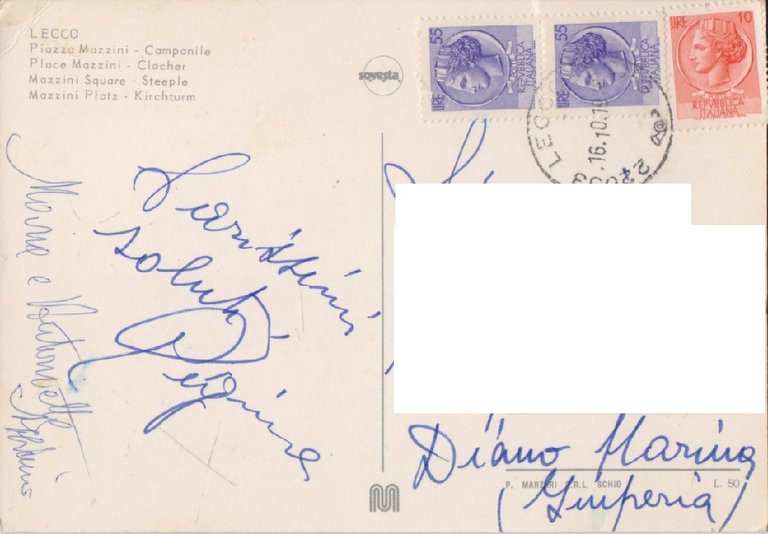 LECCO
Piazza Mazzini - Campanile
Place Mazzini - Clocher
Mazzini Square - Steeple
Mazzini Platz - Kirchturm
sovesta
LIRE 55
REPUBBLICA
ITALIANA
LIRE 55
REPUBBLICA
ITALIANA
LIRE 10
REPUBBLICA
ITALIANA
16.10.19
Carissimi
saluti
Regina
e Antonietta
Diano Marina
(Imperia)
P. MARZARI S.R.L. SCHIO
L. 50